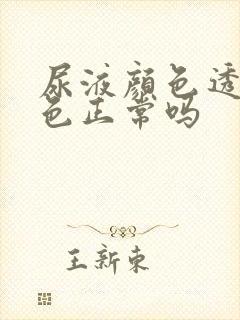 尿液顏色透
色正常吗
王新東